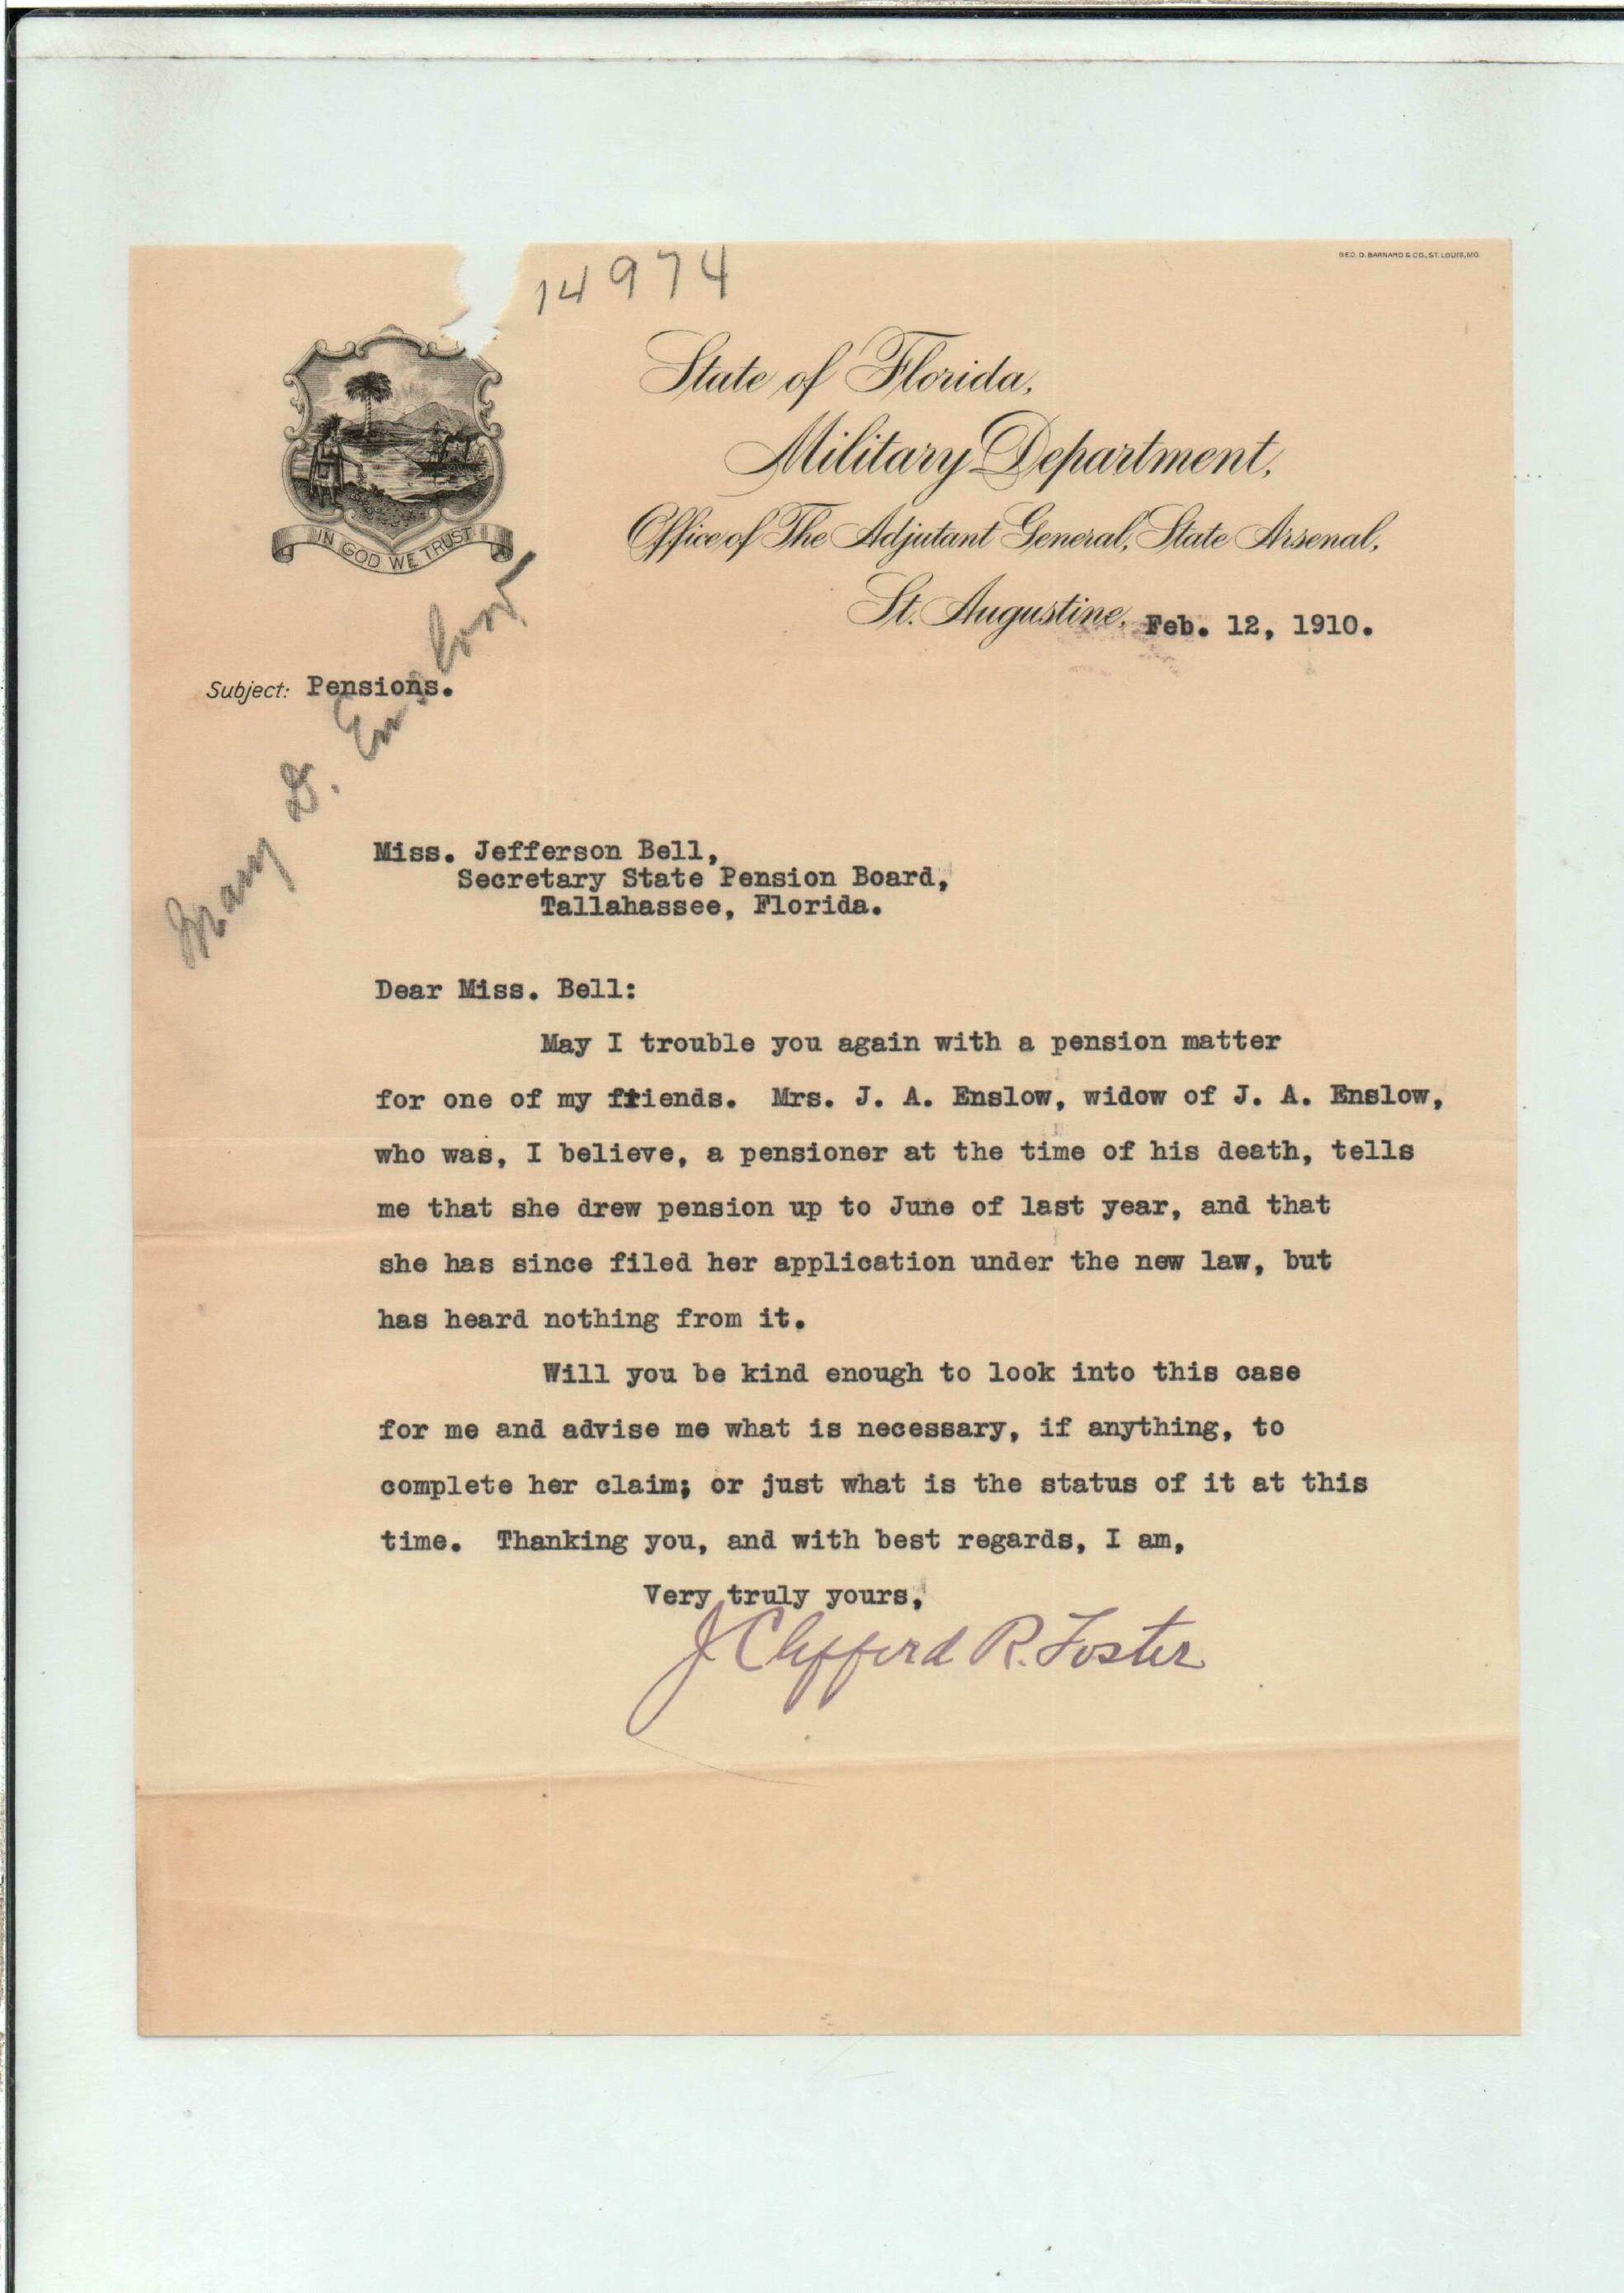 14974
GEO. D. BARNARD & CO., ST. LOUIS, MO.
State of Florida,
Military Department,
Office of The Adjutant General, State Arsenal,
St. Augustine, Feb. 12, 1910.
IN GOD WE TRUST
Subject: Pensions.
Mary G.
Miss. Jefferson Bell,
Secretary State Pension Board,
Tallahassee, Florida.
Dear Miss. Bell:
May I trouble you again with a pension matter
for one of my friends. Mrs. J. A. Enslow, widow of J. A. Enslow,
who was, I believe, a pensioner at the time of his death, tells
me that she drew pension up to June of last year, and that
she has since filed her application under the new law, but
has heard nothing from it.
Will you be kind enough to look into this case
for me and advise me what is necessary, if anything, to
complete her claim; or just what is the status of it at this
time. Thanking you, and with best regards, I am,
Very truly yours,
J Clifford R. Foster